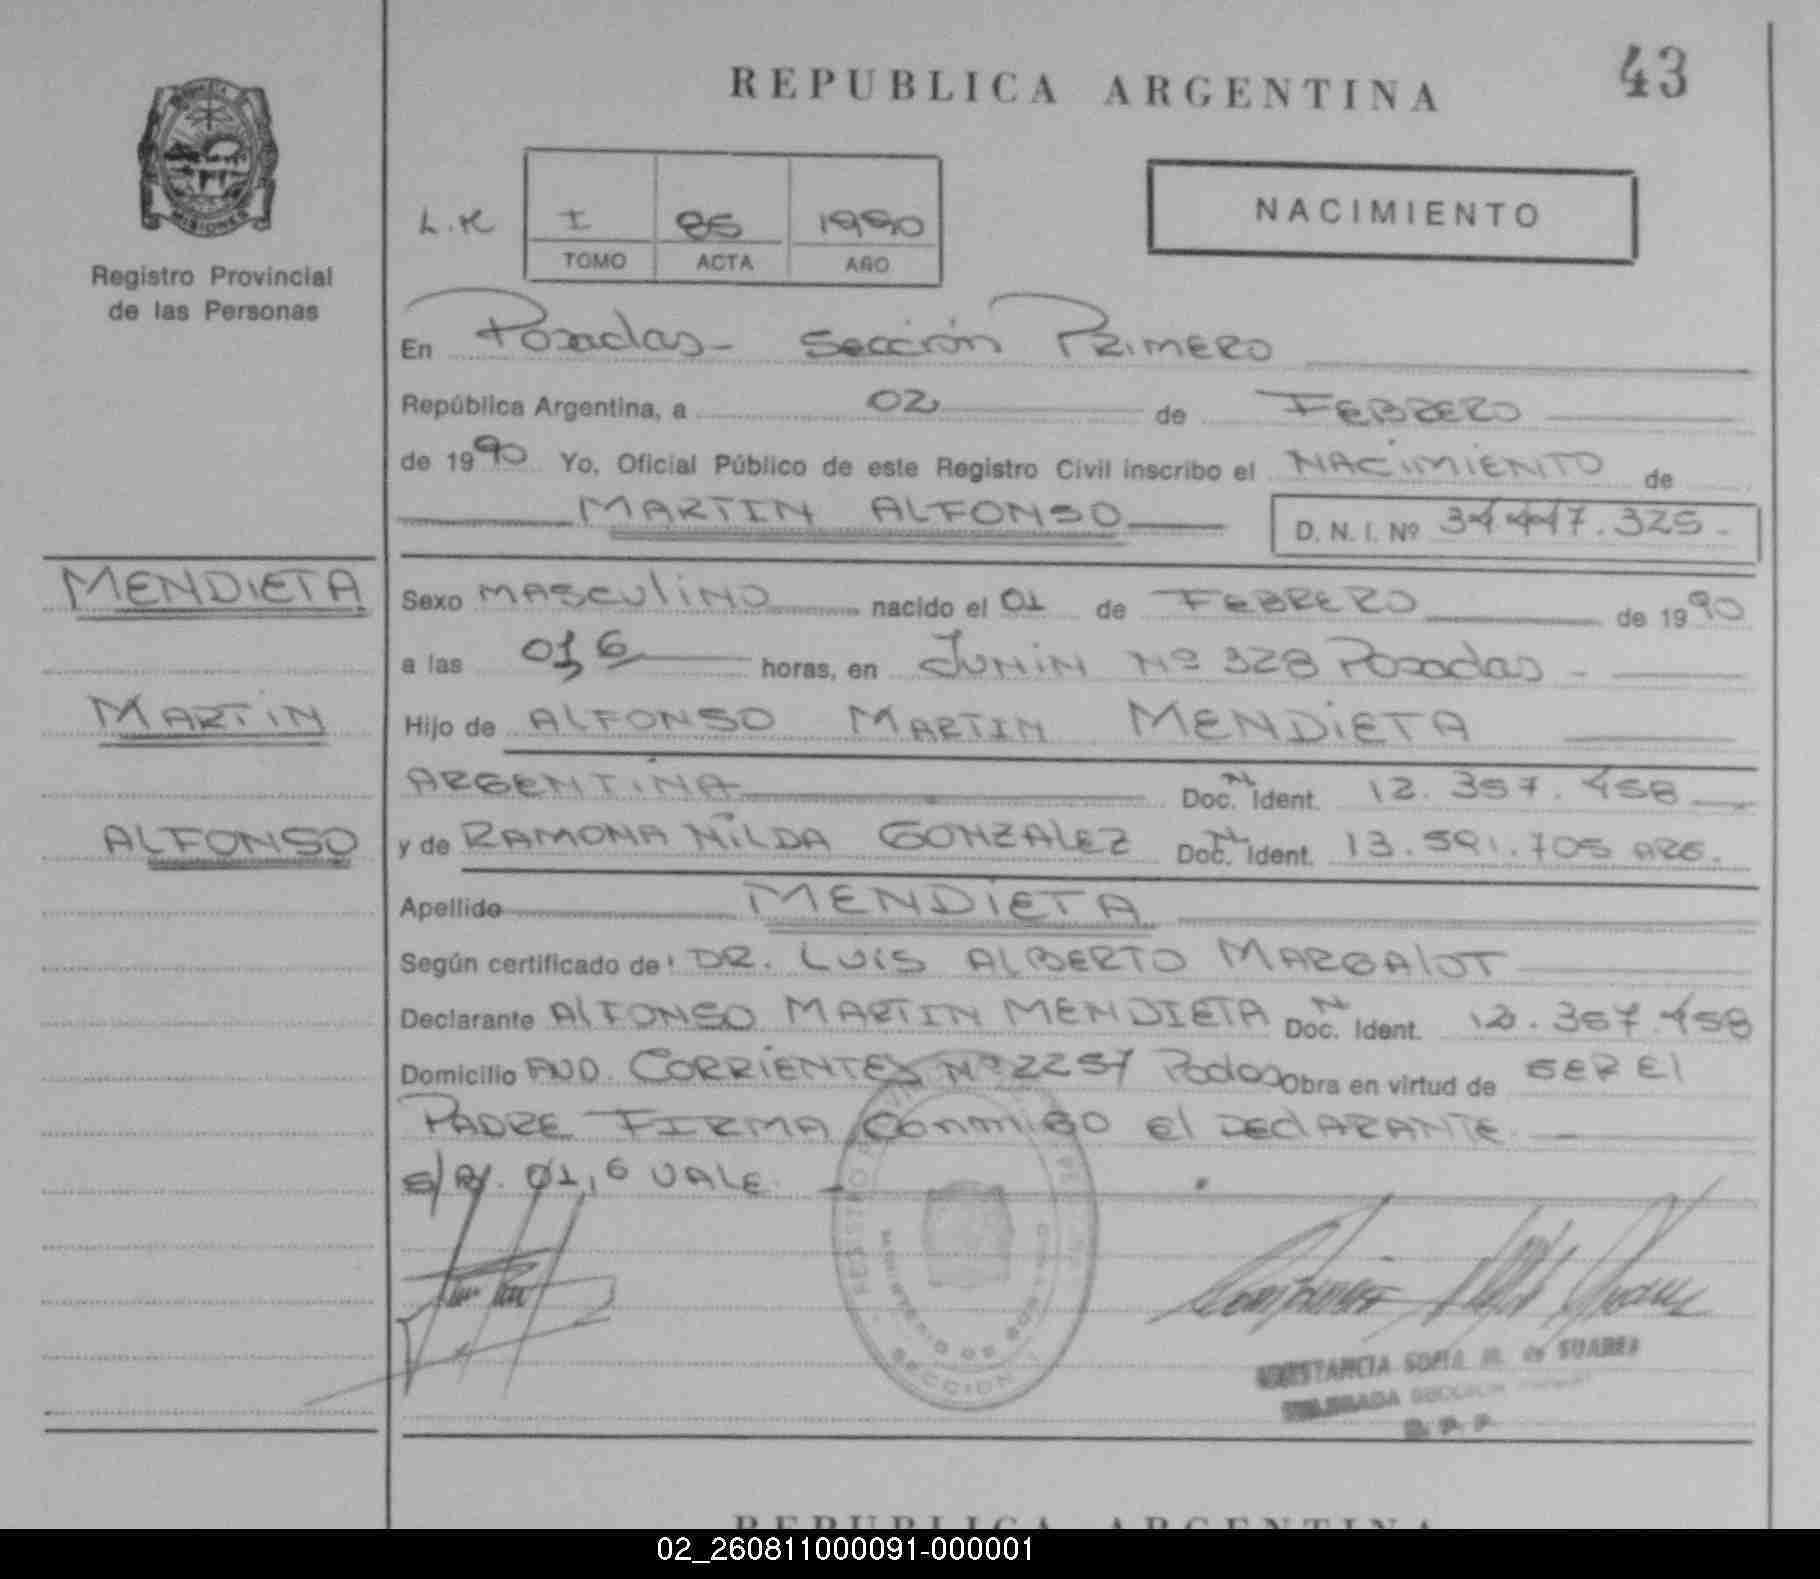 REPUBLICA ARGENTINA
43
MISIONES
Registro Provincial
de las Personas
L.R
I 85 1990
TOMO ACTA AÑO
NACIMIENTO
En Posadas - Sección Primero
República Argentina, a 02 de FEBRERO
de 1990 Yo, Oficial Público de este Registro Civil inscribo el NACIMIENTO de
MARTIN ALFONSO D. N. I. Nº 34.447.325.-
MENDIETA
MARTIN
ALFONSO
Sexo MASCULINO nacido el 01 de FEBRERO de 1990
a las 01,6 horas, en JUNIN Nº 328 Posadas -
Hijo de ALFONSO MARTIN MENDIETA
ARGENTINA Doc. N Ident. 12.357.458
y de RAMONA NILDA GONZALEZ Doc. N Ident. 13.591.705 ARG.
Apellido MENDIETA
Según certificado de: DR. LUIS ALBERTO MARGALOT
Declarante ALFONSO MARTIN MENDIETA Doc. N Ident. 12.357.458
Domicilio AVD. CORRIENTES Nº 2257 Podas Obra en virtud de SER El
PADRE FIRMA CONMIGO el DEClARANTE. -
S/R/. 01,6 VALE. -
SECCION
CONSTANCIA SOFIA M. de SUAREZ
DELEGADA SECCION
R. P. P.
REPUBLICA ARGENTINA
02_260811000091-000001